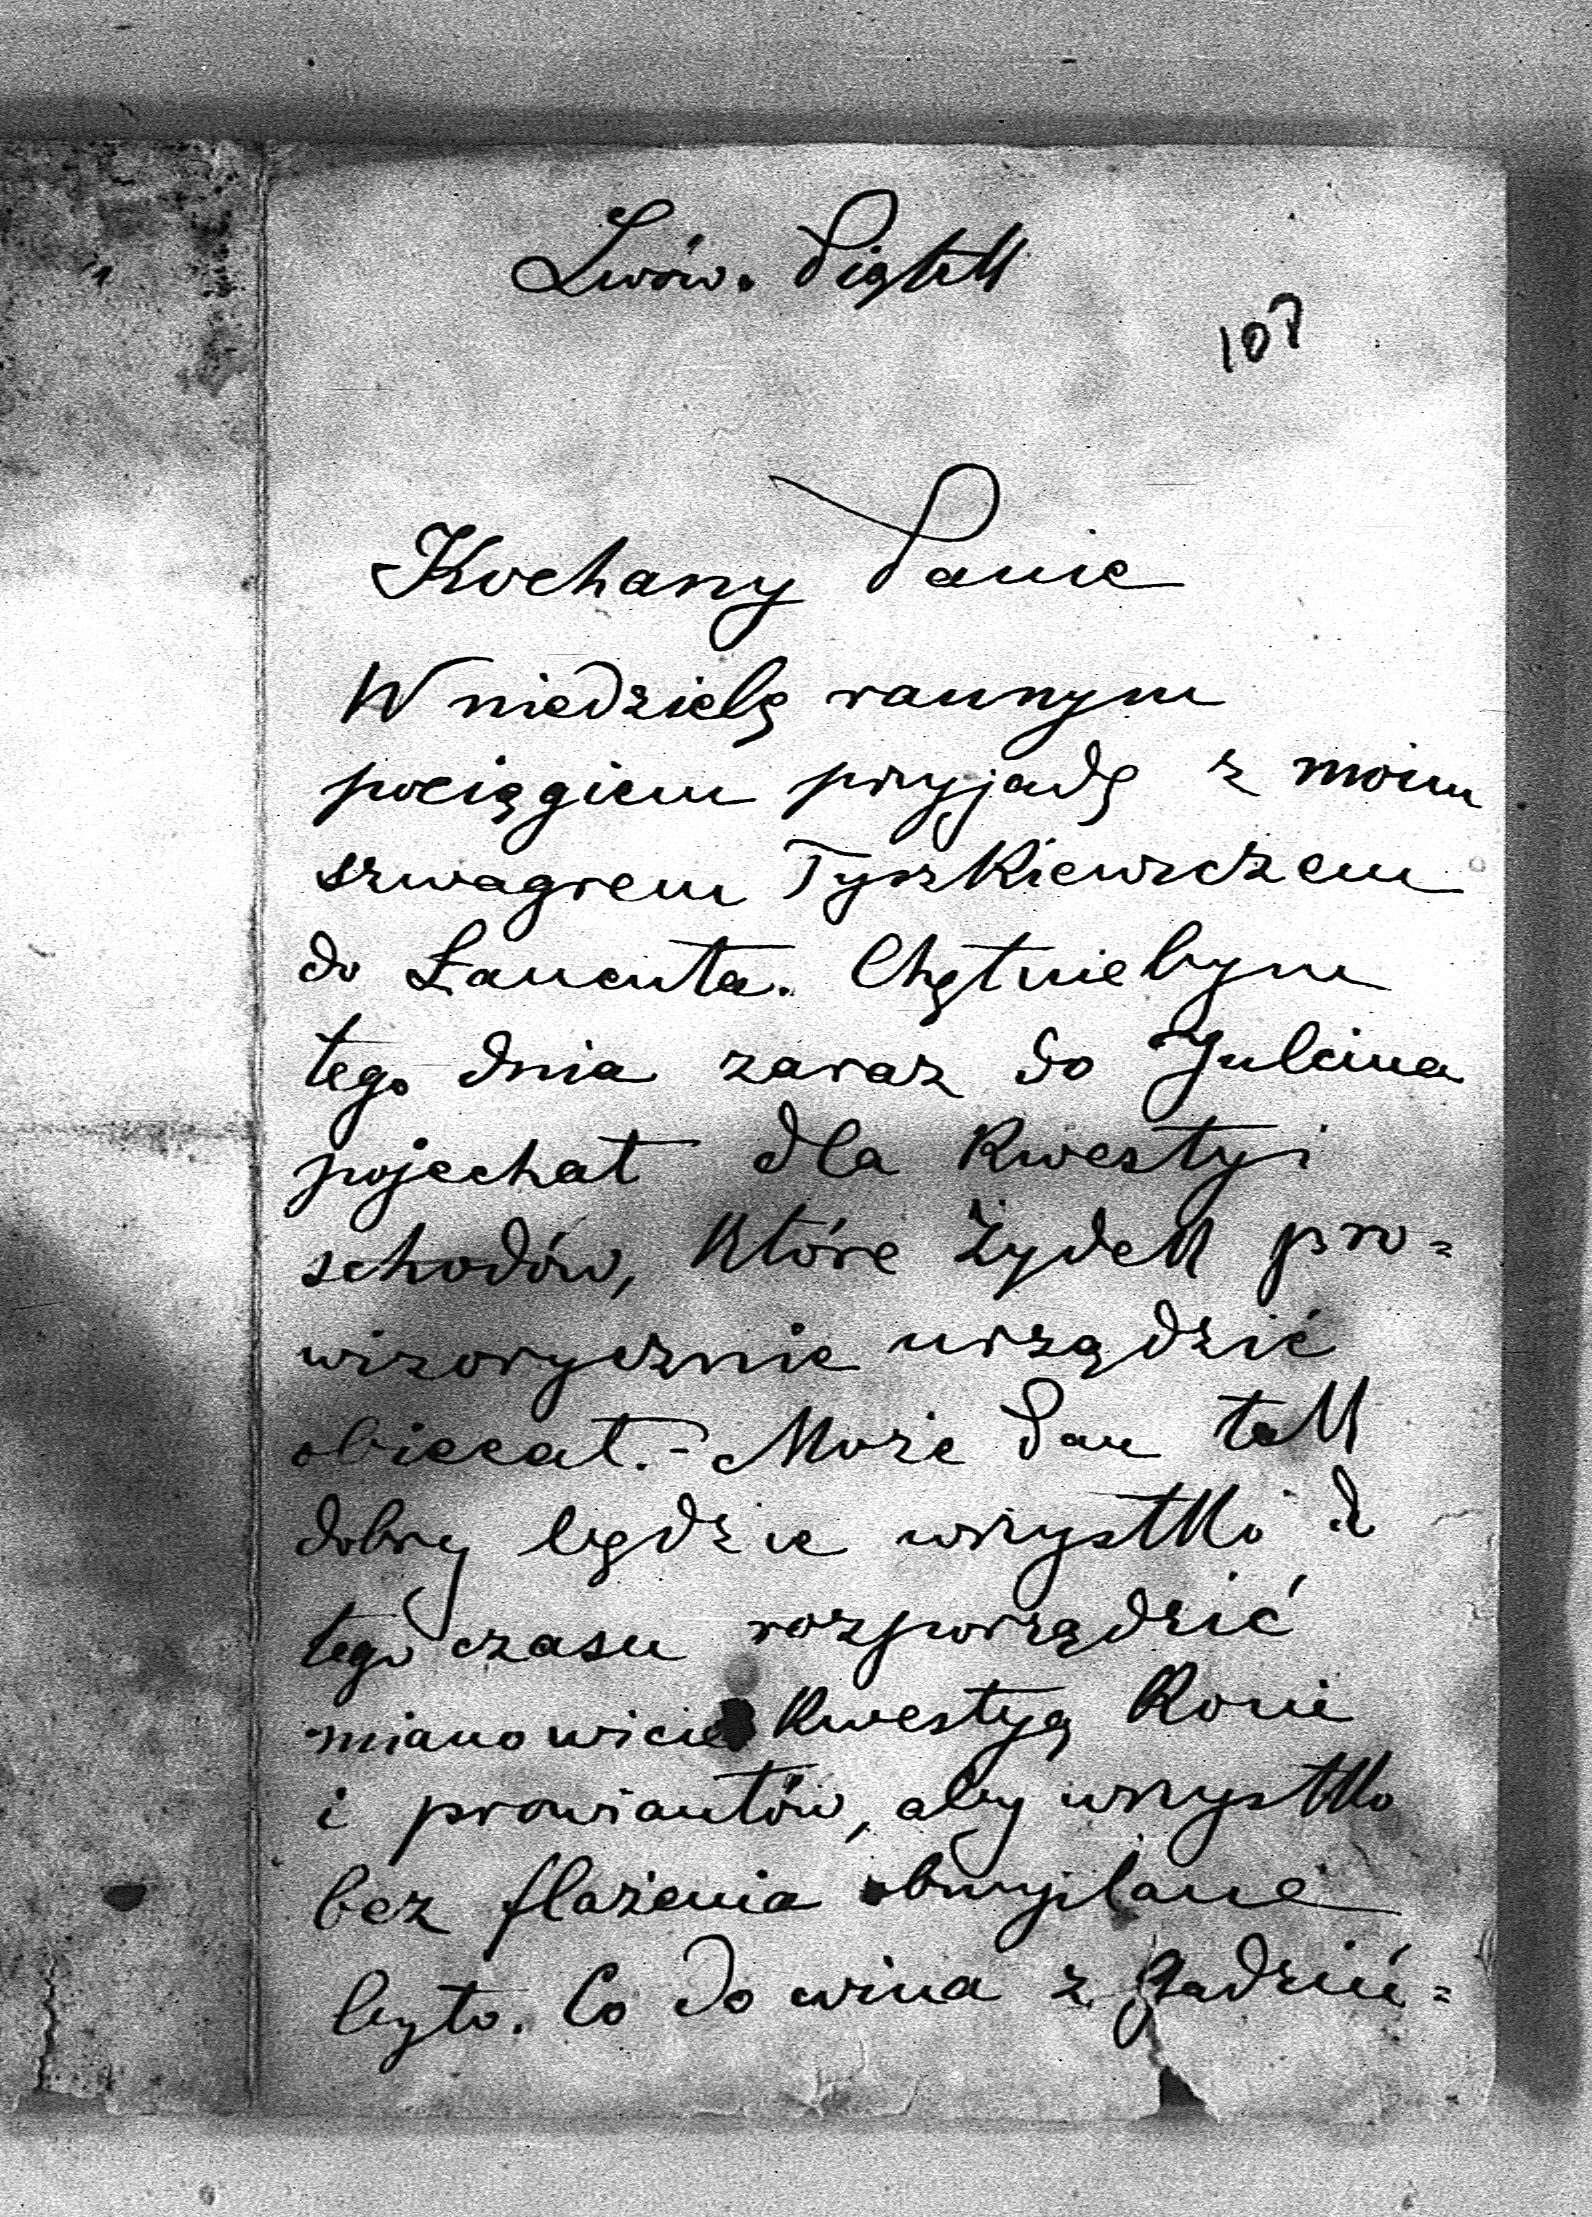 Lwów. Piątek
107
Kochany Panie
W niedzielę rannym
pociągiem przyjadę z moim
szwagrem Tyszkiewiczem
do Łańcuta. Chętniebym
tego dnia zaraz do Julcina
pojechał dla kwestyi
schodów, które Żydek pro=
wizorycznie urządzić
obiecał.- Może Pan tak
dobry będzie wszystko do
tego czasu rozporządzić
mianowicie kwestyą koni
i prowiantów, aby wszystko
bez flażenia obmyślane
było. Co do wina z